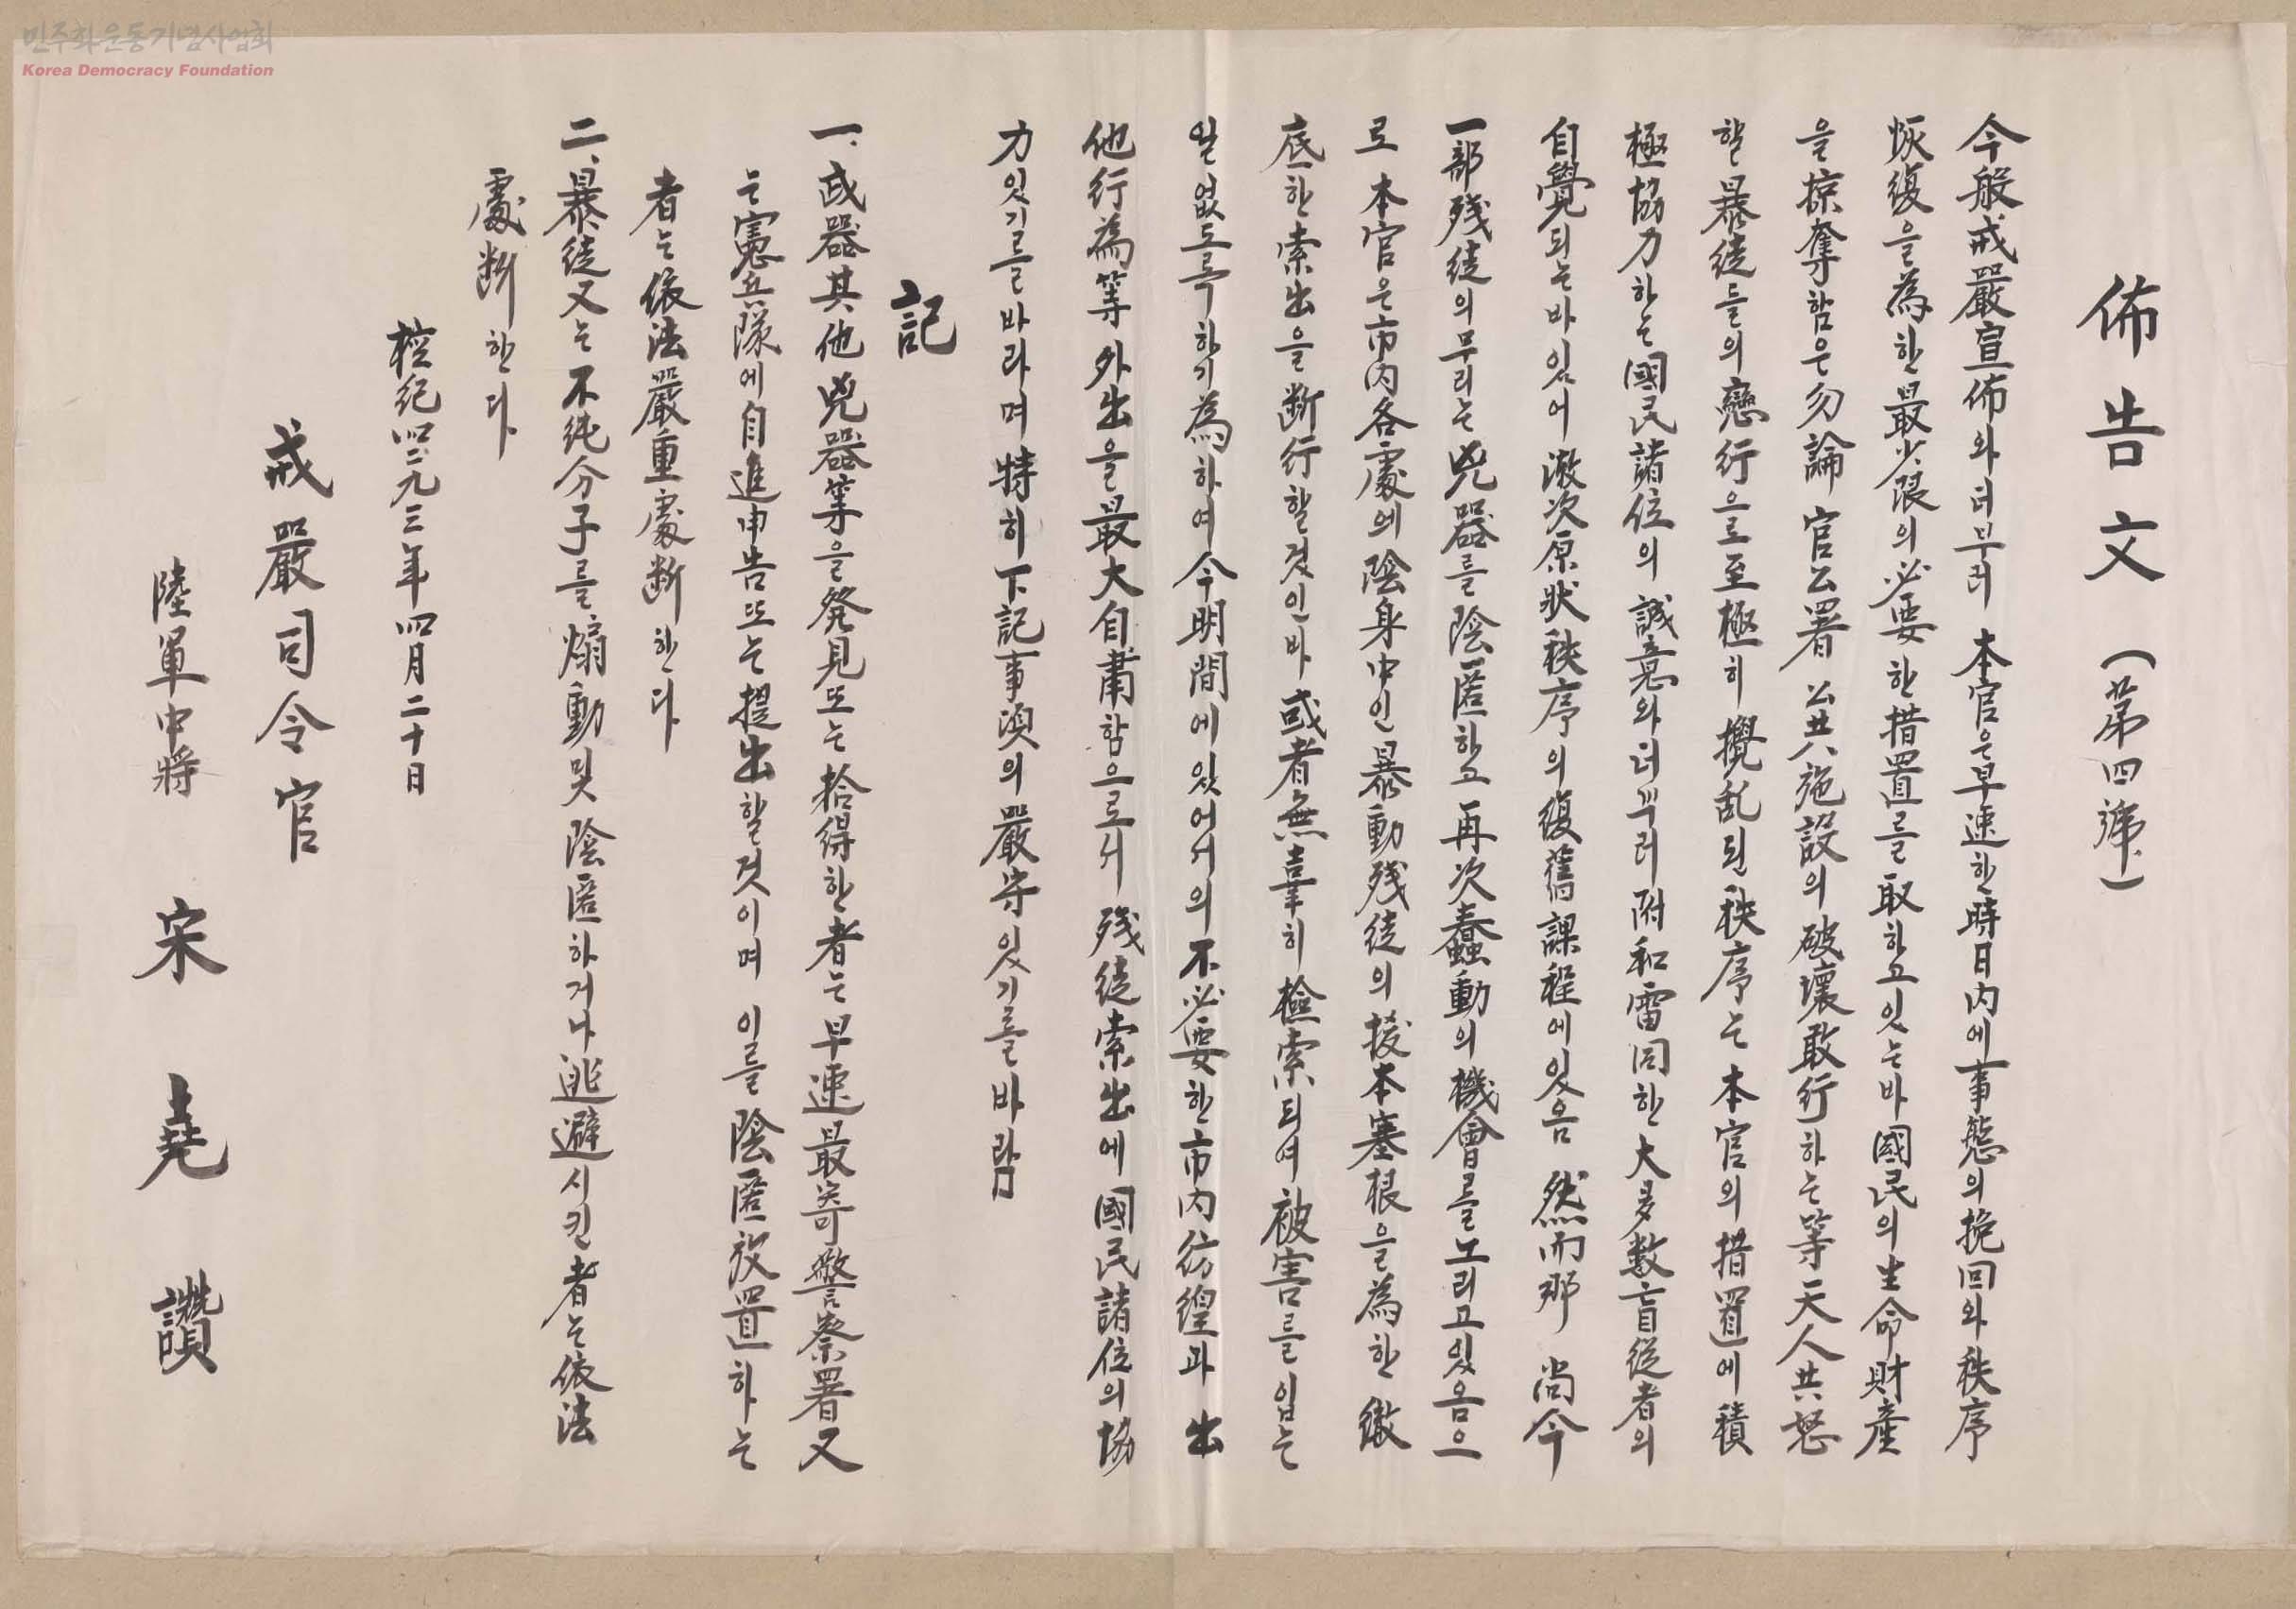 민주화운동기념사업회
Korea Democracy Foundation
佈告文 (第四號)
今般戒嚴宣佈와더부러 本官은早速한時日內에事態의挽回와秩序
恢復을為한最少限의必要한措置를取하고잇는바國民의生命財產
을掠奪함은勿論 官公署 公共施設의破壞敢行하는等天人共怒
할暴徒들의戀行으로至極히攪乱된秩序는本官의措置에積
極協力하는國民諸位의誠意와더부러附和雷同한大多数盲從者의
自覺되는바있어漸次原狀秩序의復舊課程에있음 然而那 尚今
一部残徒의무리는兇器를陰匿하고再次蠢動의機會를노리고있음으
로本官은市內各處에陰身中인暴動残徒의拔本塞根을為한徹
底한索出을断行할것인바 或者無辜히檢索되여被害를입는
일없도록하기為하여今明間에있어서의不必要한市内彷徨과出
他行為等外出을最大自肅함으로서 残徒索出에國民諸位의協
力있기를바라며特히下記事項의嚴守있기를바람
記
一. 武器其他兇器等을発見또는拾得한者는早速最寄警察署又
는憲兵隊에自進申告또는提出할것이며 이를陰匿放置하는
者는依法嚴重處断한다
二. 暴徒又는不純分子를煽動및陰匿하거나逃避시킨者는依法
處断한다
檀紀四二九三年四月二十日
戒嚴司令官
陸軍中將 宋堯讚